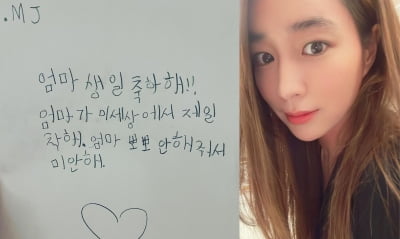 .MJ
엄마 생일 축하해!!
엄마가 이세상에서 제일
착해. 엄마 뽀뽀 안해줘서
미안해.